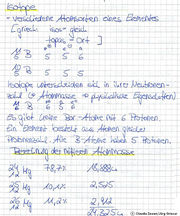 Isotope
- verschiedene Atomsorten eines Elementes
[griech. isos - gleich
topos = Ort ]
11 B 5 5 6
5
10 B 5 5 5
5
Isotope unterscheiden sich in ihrer Neutronen-
zahl (→ Atommasse → physikalische Eigenschaften)
11 B
Es gibt keine Bor-Atome mit 6 Protonen.
Ein Element besteht aus Atomen gleicher
Protonenzahl. Für B-Atome sind 5 Protonen.
Berechnung der mittleren Atommasse
24 Mg 78,7%
12
25 Mg 10,1% 2,525
12
26 Mg 11,2% 2,912
12